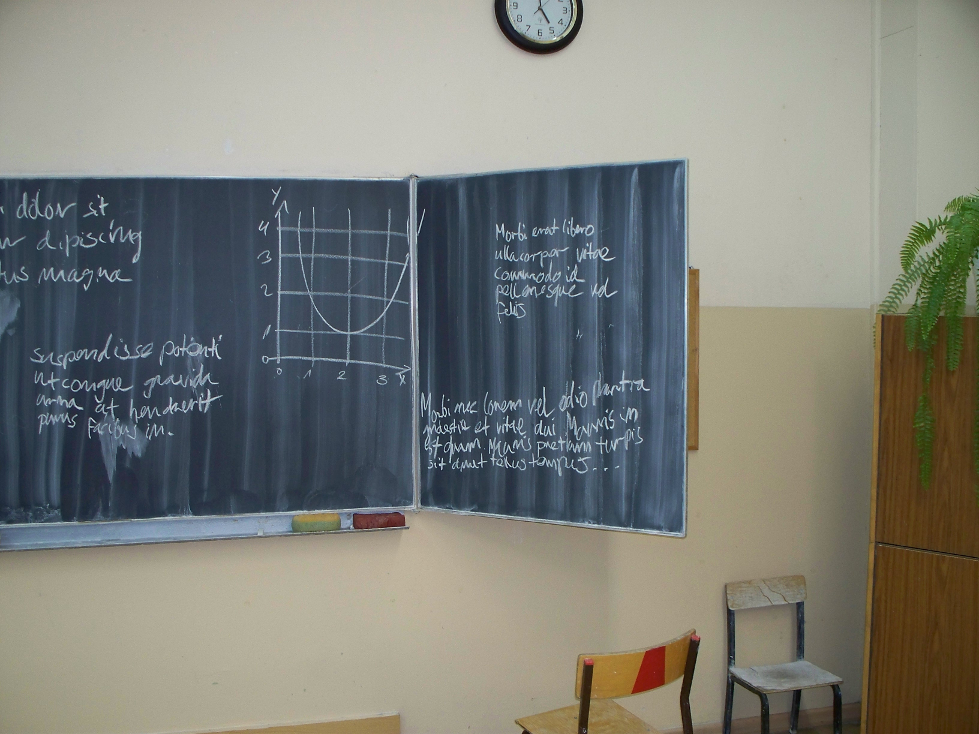 dolor sit
dipiscing
tus magna
suspendisse potenti
ut congue gravida
urna at hendrerit
purus facibus in.
Y
4
3
2
1
0
0 1 2 3 X
Morbi erat libero
ullacorpor vitae
commodo id
pellenesque vel
felis
Morbi nec lorem vel odio pharetra
molestie et vitae dui Mauris in
et quam. Mauris pretium turpis
sit amat tellus tempus...
3
4
5
6
7
8
9